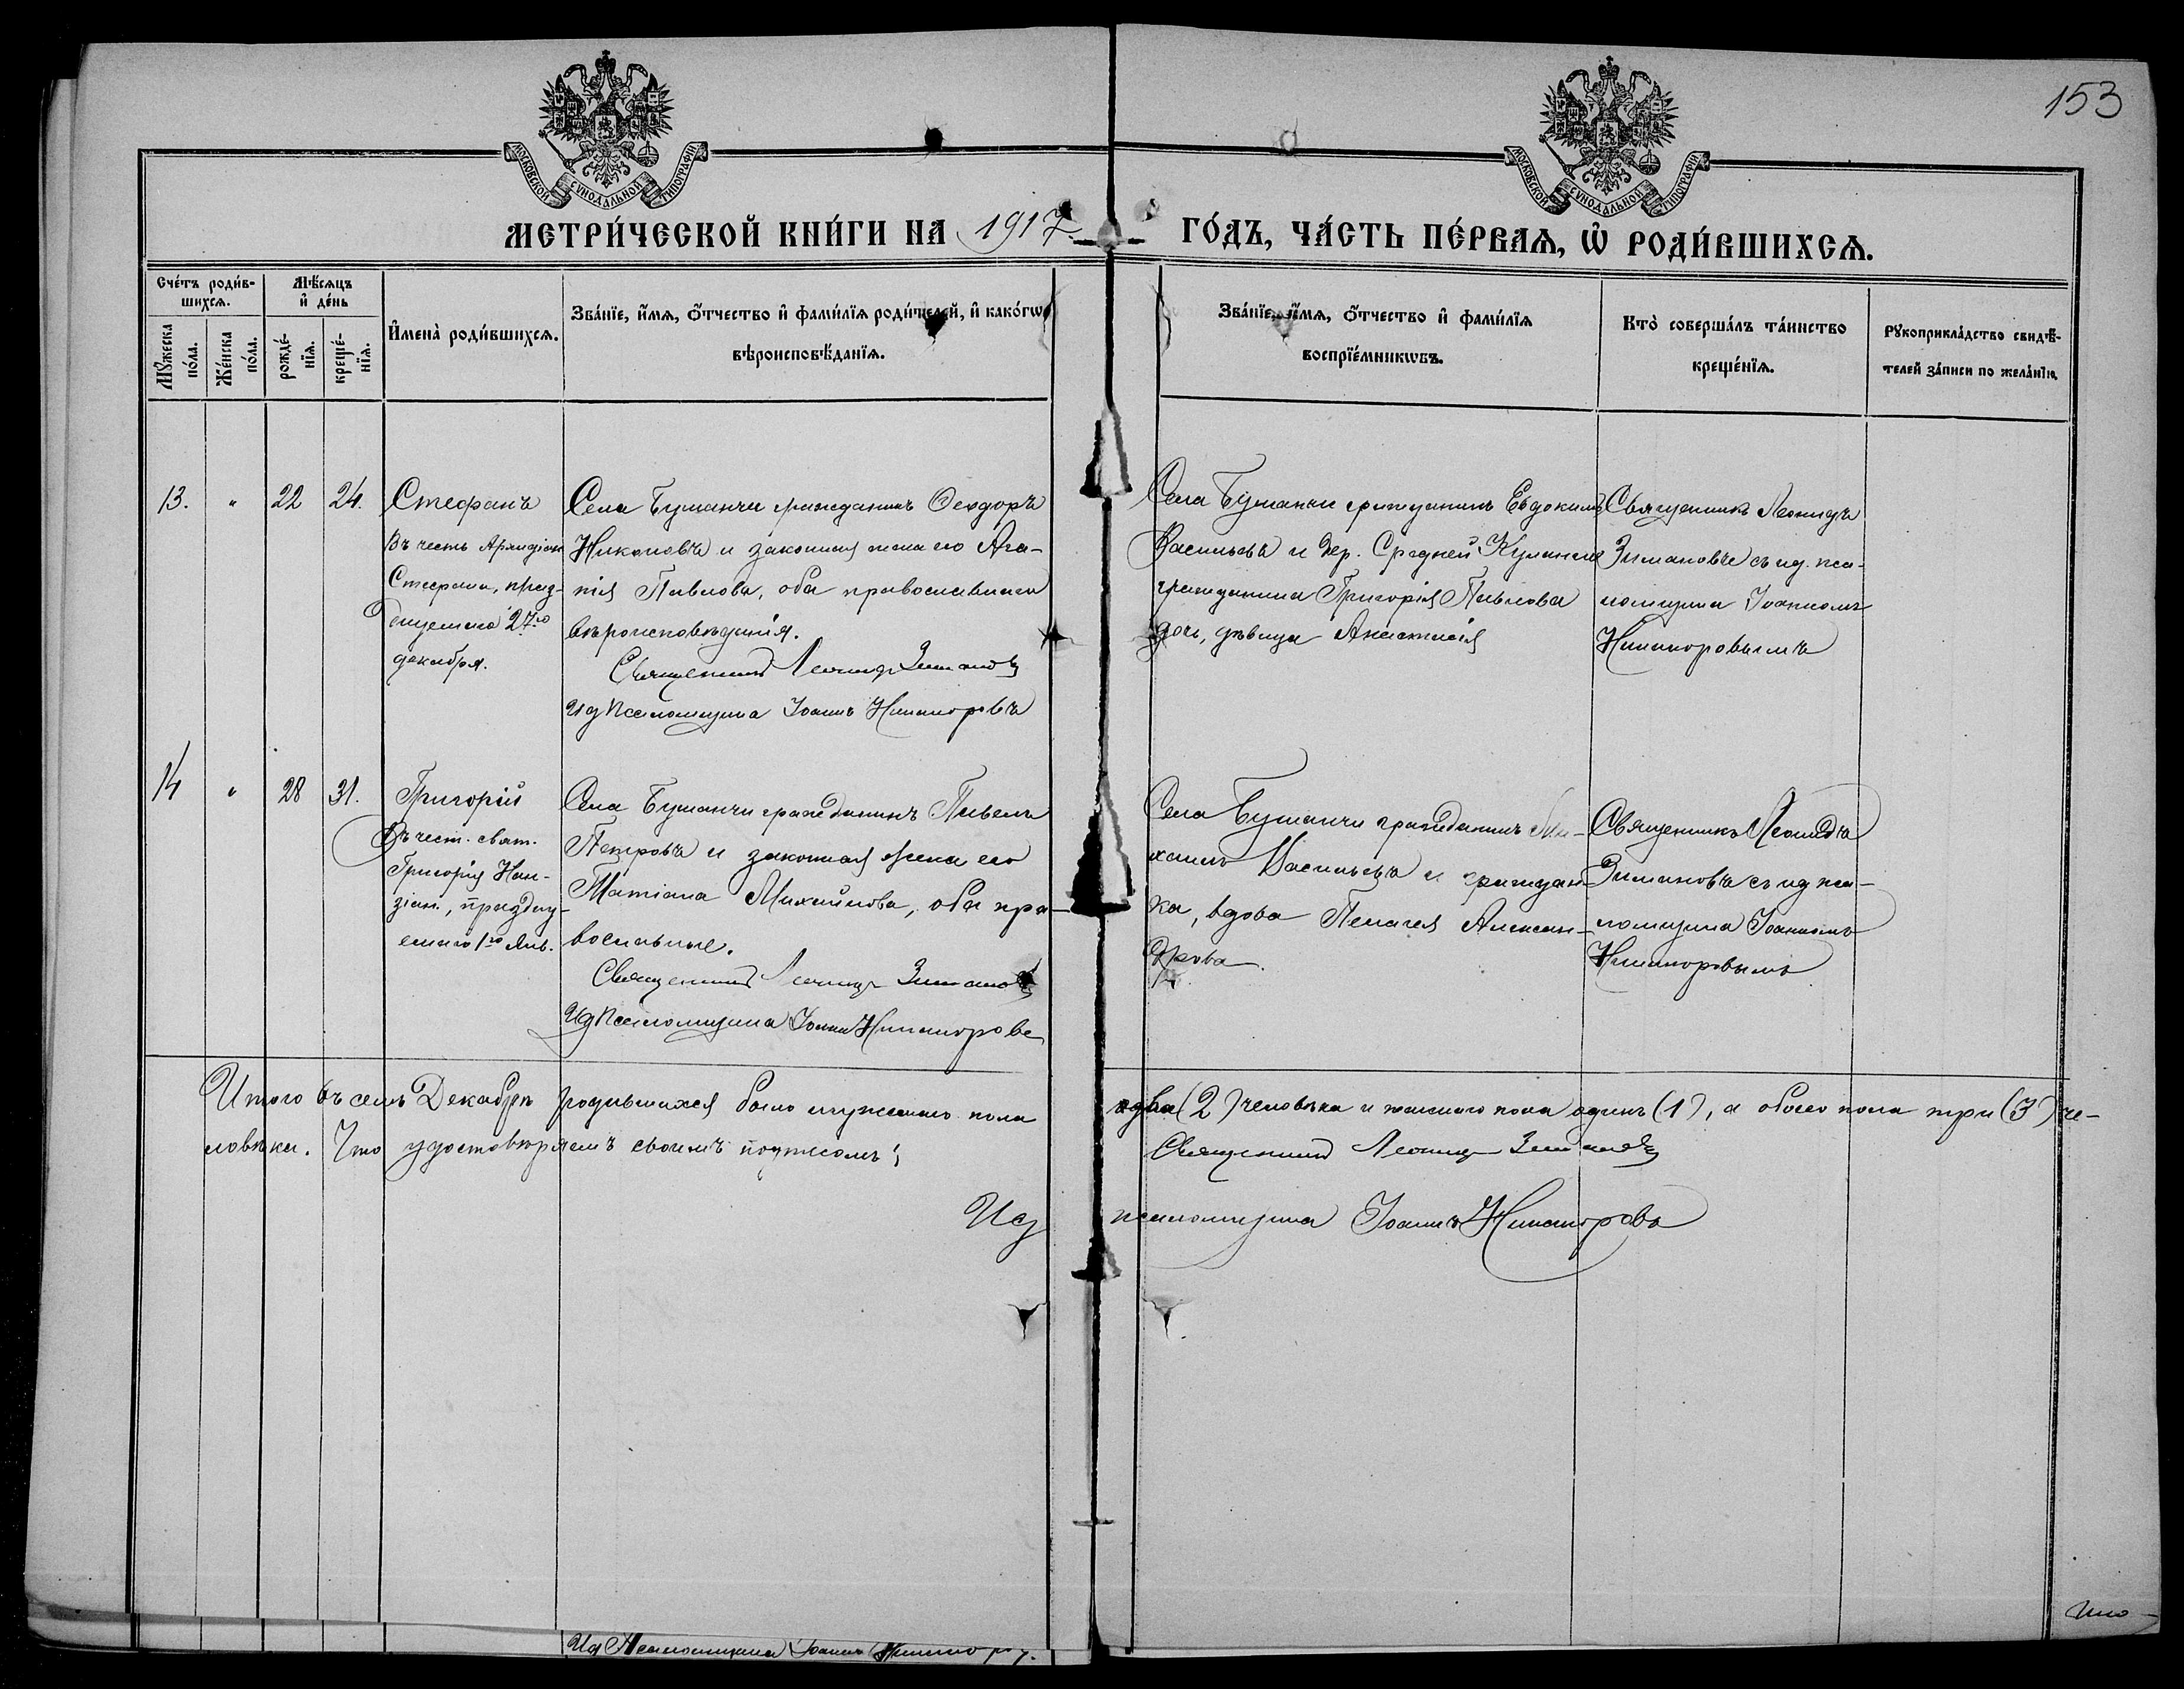 153
МОСКОВСКОЙ СУНОДАЛЬНОЙ ТИПОГРАФІИ
МОСКОВСКОЙ СУНОДАЛЬНОЙ ТИПОГРАФІИ
МЕТРИ́ЧЕСКОЙ КНИ́ГИ НА 1917 ГО́ДЪ, ЧА́СТЬ ПЕ́РВАѦ, Ѡ҆ РОДИ́ВШИХСѦ.
Сче́тъ роди́в-
шихсѧ.
Мꙋ́жеска
по́ла.
Же́нска
по́ла.
Мѣ́сѧцъ
и҆ де́нь
рожде́-
нїѧ.
креще́-
нїѧ.
И҆мена̀ роди́вшихсѧ.
Зва́нїе, и҆́мѧ, ѻ҆́тчество и҆ фами́лїѧ роди́телей, и҆ како́гѡ
вѣроисповѣ́данїѧ.
Зва́нїе, и҆́мѧ, ѻ҆́тчество и҆ фами́лїѧ
воспрїе́мникѡвъ.
Кто̀ соверша́лъ та́инство
креще́нїѧ.
Рꙋкоприкла́дство свидѣ́-
телей за́писи по жела́нїю.
13.
"
22
24.
Стефанъ
Въ честь Архидіак
Стефана, праз-
днуемаго 27го
декабря.
Села Буманчи гражданинъ Ѳеодоръ
Никоновъ и законная жена его Ага-
пія Павлова, оба православнаго
вѣроисповѣданія.
Священникъ Леонидъ Зимановъ
ИД Псаломщика Іоаннъ Никаноровъ
Села Буманчи гражданинъ Евдокимъ
Васильевъ и дер. Средней
гражданина Григорія Павлова
дочь, дѣвица Анастасія
Священникъ Леонидъ
Зимановъ съ ид. пса-
ломщика Іоанномъ
Никаноровымъ
14
"
28
31.
Григорій
Въ чест. свят.
Григорія Нан-
зіан., праздну-
емаго 1го Янв.
Села Буманчи гражданинъ Павелъ
Петровъ и законная жена его
Татіана Михайлова, оба пра-
вославные.
Священникъ Леонидъ Зимановъ
ИД Псаломщика Іоаннъ Никаноровъ
Села Буманчи гражданинъ Ми-
хаилъ Васильевъ и граждан-
ка, вдова Пелагея Алексан-
дрова.
Священникъ Леонидъ
Зимановъ съ ид пса-
ломщика Іоанномъ
Никаноровымъ
Итого въ семъ Декабрѣ родившихся было мужескаго пола два (2) человѣка и женскаго пола одинъ (1), а обоего пола три (3) че-
ловѣка. Что удостовѣряемъ своимъ подписомъ: Священникъ Леонидъ Зимановъ
ИД псаломщика Іоаннъ Никаноровъ
Ито-
ИД Псаломщика Іоаннъ